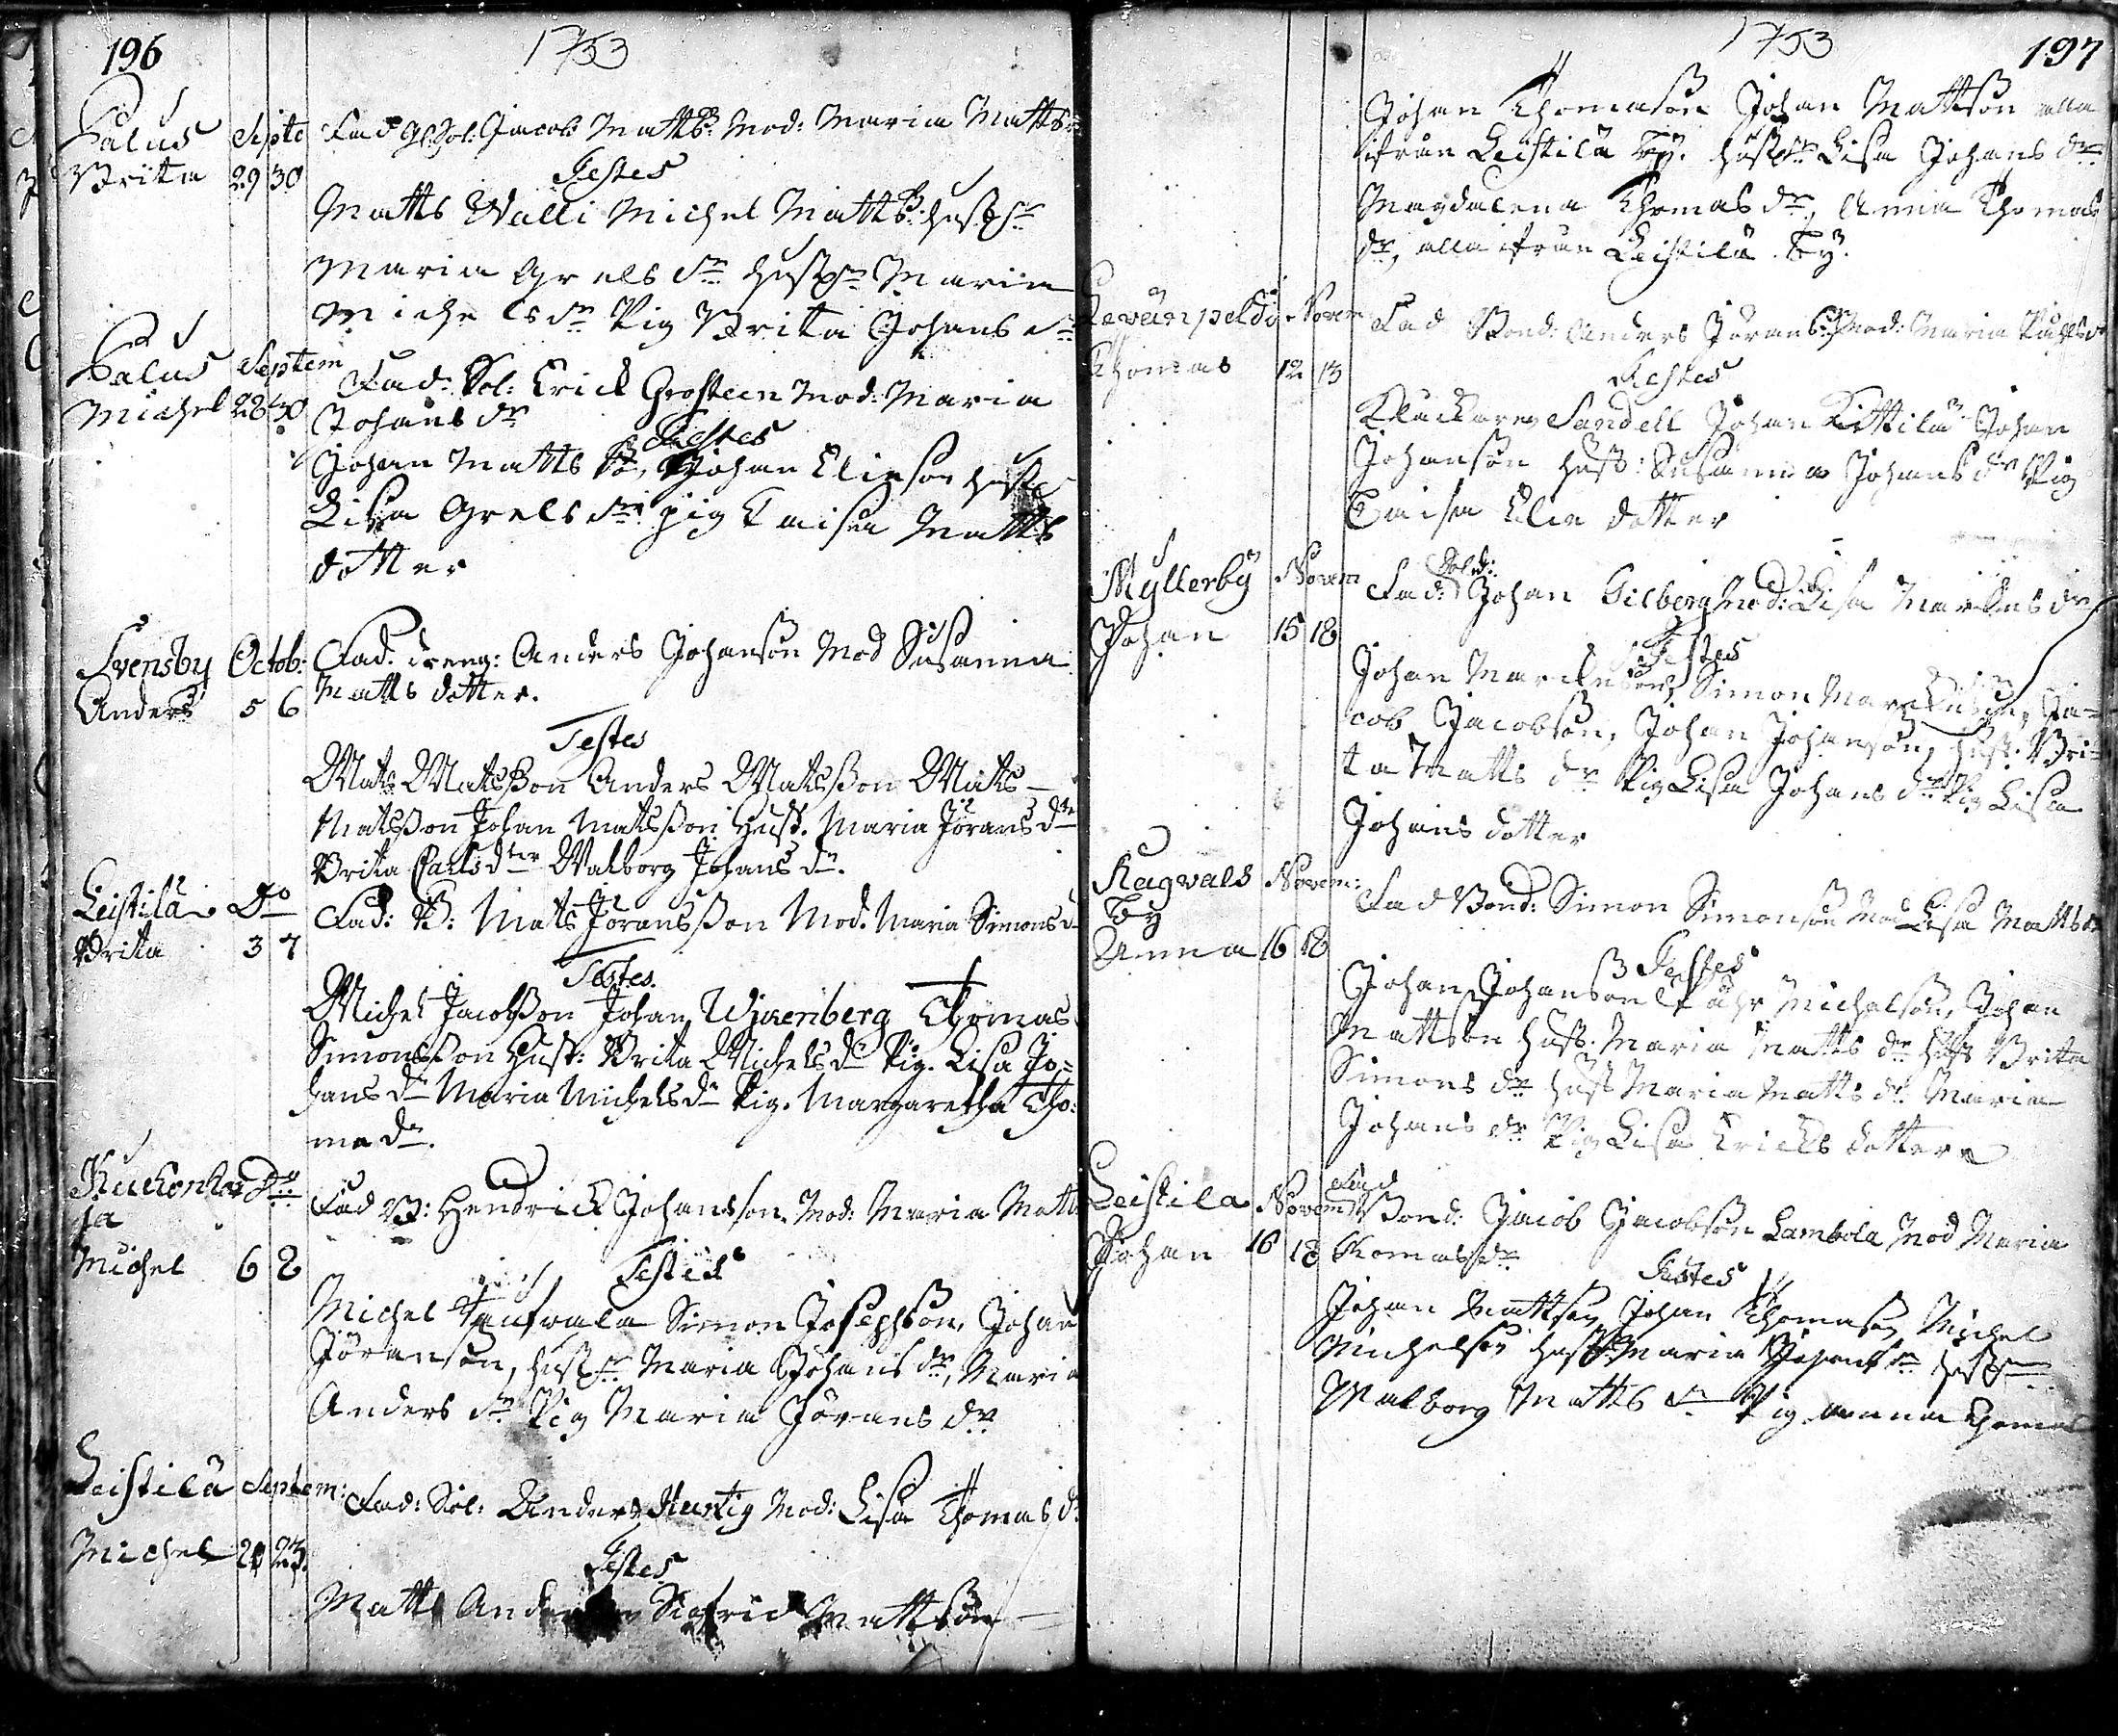 196
1753
Palus Septe Fad Gl. Sol: Jacob Mattsß: Mod: Maria Matts
Brita 29 30 Testes
Matts Walli Michel Mattsß: Hust
Maria Grels dr Hust Maria
Michelsdr Pig Brita Johans dr
Palus Septem Fad: Sol: Erick Grosteen Mod: Maria
Michel 28 30 Johans dr
Testes
Johan Matts Johan Elieson Hust
Lisa Grels dr pig Caisa Matts
dotter
Svensby Octob: Fad. dreng: Anders Johanson Mod Susanna
Anders 5 6 Matts dotter.
Testes
Mats Matsßon Anders Matsßon Mats
Matsßon Johan Matsßon Hust. Maria Jörans dr
Brita Carls dter Walborg Johans dr.
Leistilä Do Fad: B: Mats Joransßon Mod. Maria Simons d
Brita 3 7
Testes.
Michel Jacobßon Johan Wirenberg Thomas
Simonsßon Hust: Brita Michels dr Pig. Lisa Jo=
hans dr Maria Michels dr Pig. Margaretha Tho:
ma dr.
Kuckonhar Do
ja Fad B: Hendrick Johansson. Mod: Maria Matts
Michel 6 8
Testes
Michel Simon Josephson, Johan
Jöranson, Hust Maria Johans dr, Maria
Anders dr Pig Maria Jörans dr
Leistilä Septem: Fad: Sol: Anders Hurtig Mod: Lisa Thomas dr
Michel 20 23.
Testes
Matts Sigfrid Mattson
1753
197
Johan Thomason Johan Mattson alla
ifrån Leistilä by. Hust Lisa Johans dr
Magdalena Thomas dr, Anna Thomas
dr, alla ifrån Leistilä by.
Levänpeldo Novem Fad Bond: Anders Jörans Mod: Maria
Thomas 12 13
Testes
Kluckaren Sandell Johan Kittilä Johan
Johanson Hust: Susanna Johans dr Pig
Caisa Elie dotter
Myllerby Novem Fad: Sold: Johan Gilberg Mod: Lisa Marckus dr
Johan 15 18
Testes
Johan Marckuson, Simon Marckuson, Ja=
cob Jacobson, Johan Johanson, Hust. Bri=
ta Matts dr Pig Lisa Johans dr Pig Lisa
Johans dotter
Ragvals Novem: Fad Bond: Simon Simonson Mod Lisa Matts dr
by
Anna 16 18
Testes
Johan Johanson Påhr Michelson, Johan
Mattson Hust. Maria Matts dr Hust Brita
Simons dr Hust Maria Matts dr Maria
Johans dr Pig Lisa Ericks dotter
Leistila Novem Fad Bond: Jacob Jacobson Lambola Mod Maria
Johan 16 18 Thomas dr
Testes
Johan Mattson Johan Thomason Michel
Michelson Hust Maria Johans dr Hust
Walborg Matts dr Pig Anna Thomas